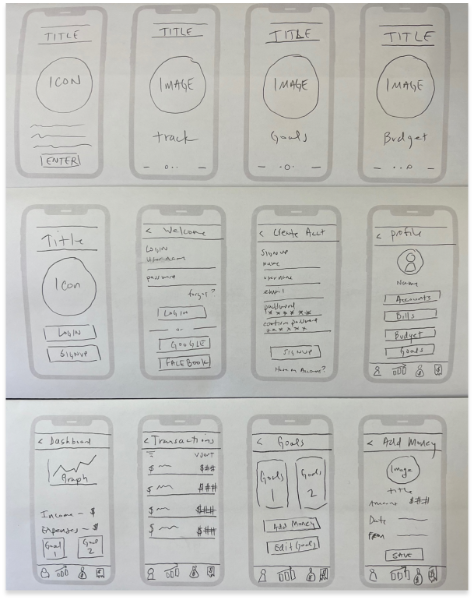 TITLE
ICON
ENTER
TITLE
IMAGE
track
TITLE
IMAGE
Goals
TITLE
IMAGE
Budget
Title
Icon
LOGIN
SIGNUP
< Welcome
LOGIN
username
password
forgot?
LOGIN
or
GOOGLE
FACEBOOK
< Create Acct
Signup
name
username
email
password
******
confirm password
******
SIGNUP
Have an Account?
< profile
Name
Accounts
Bills
Budget
Goals
< Dashboard
Graph
Income - $
Expenses - $
Goal
1
Goal
2
< Transactions
$ $##
$ $##
$ $##
$ $##
< Goals
Goals
1
Goals
2
Add Money
Edit Goals
< Add Money
Image
title
Amount $##
Date
From
SAVE